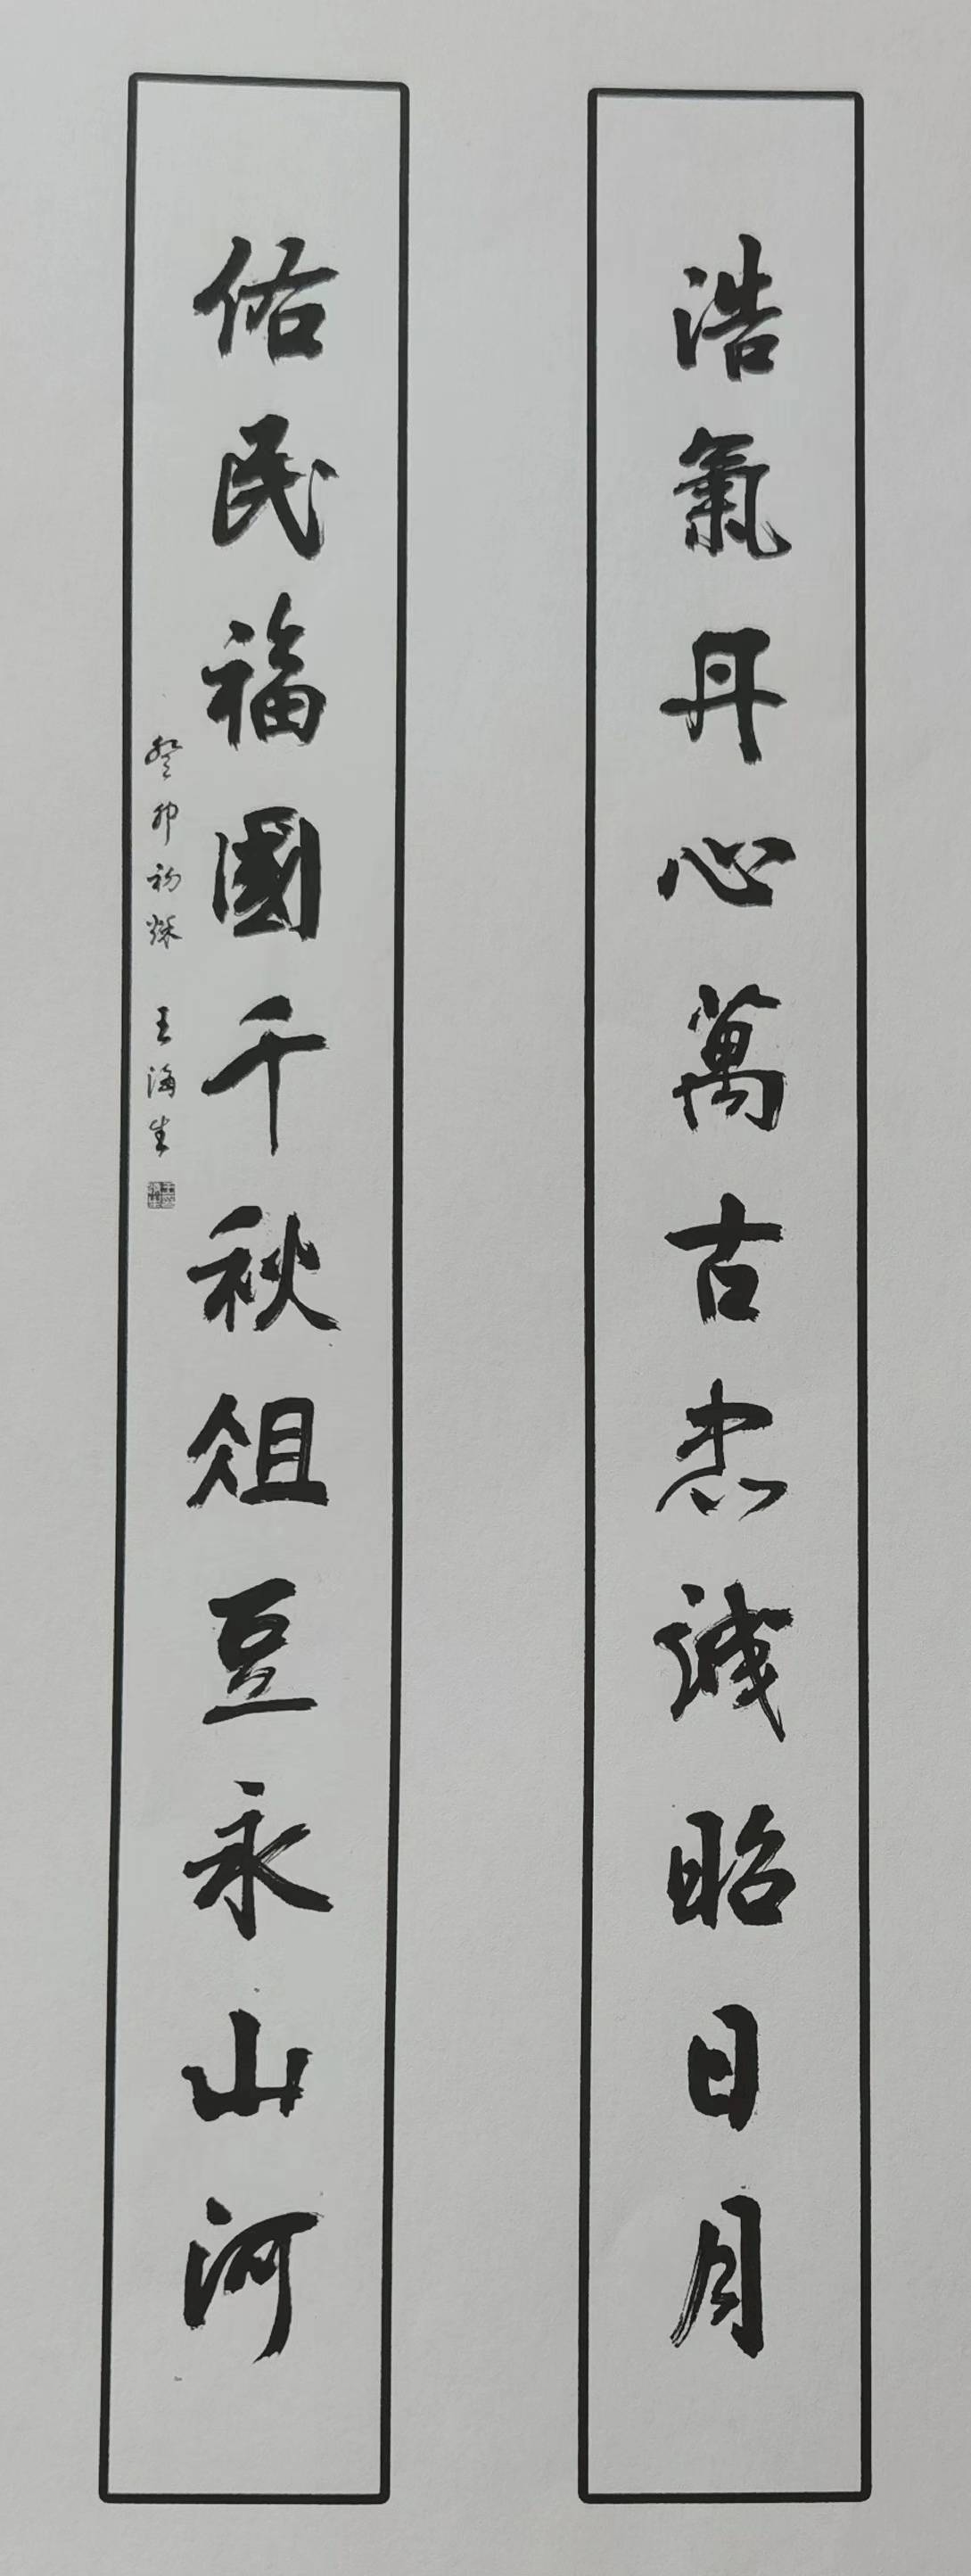 浩氣丹心萬古忠誠昭日月
佑民福國千秋俎豆永山河
癸卯初秌 王海生